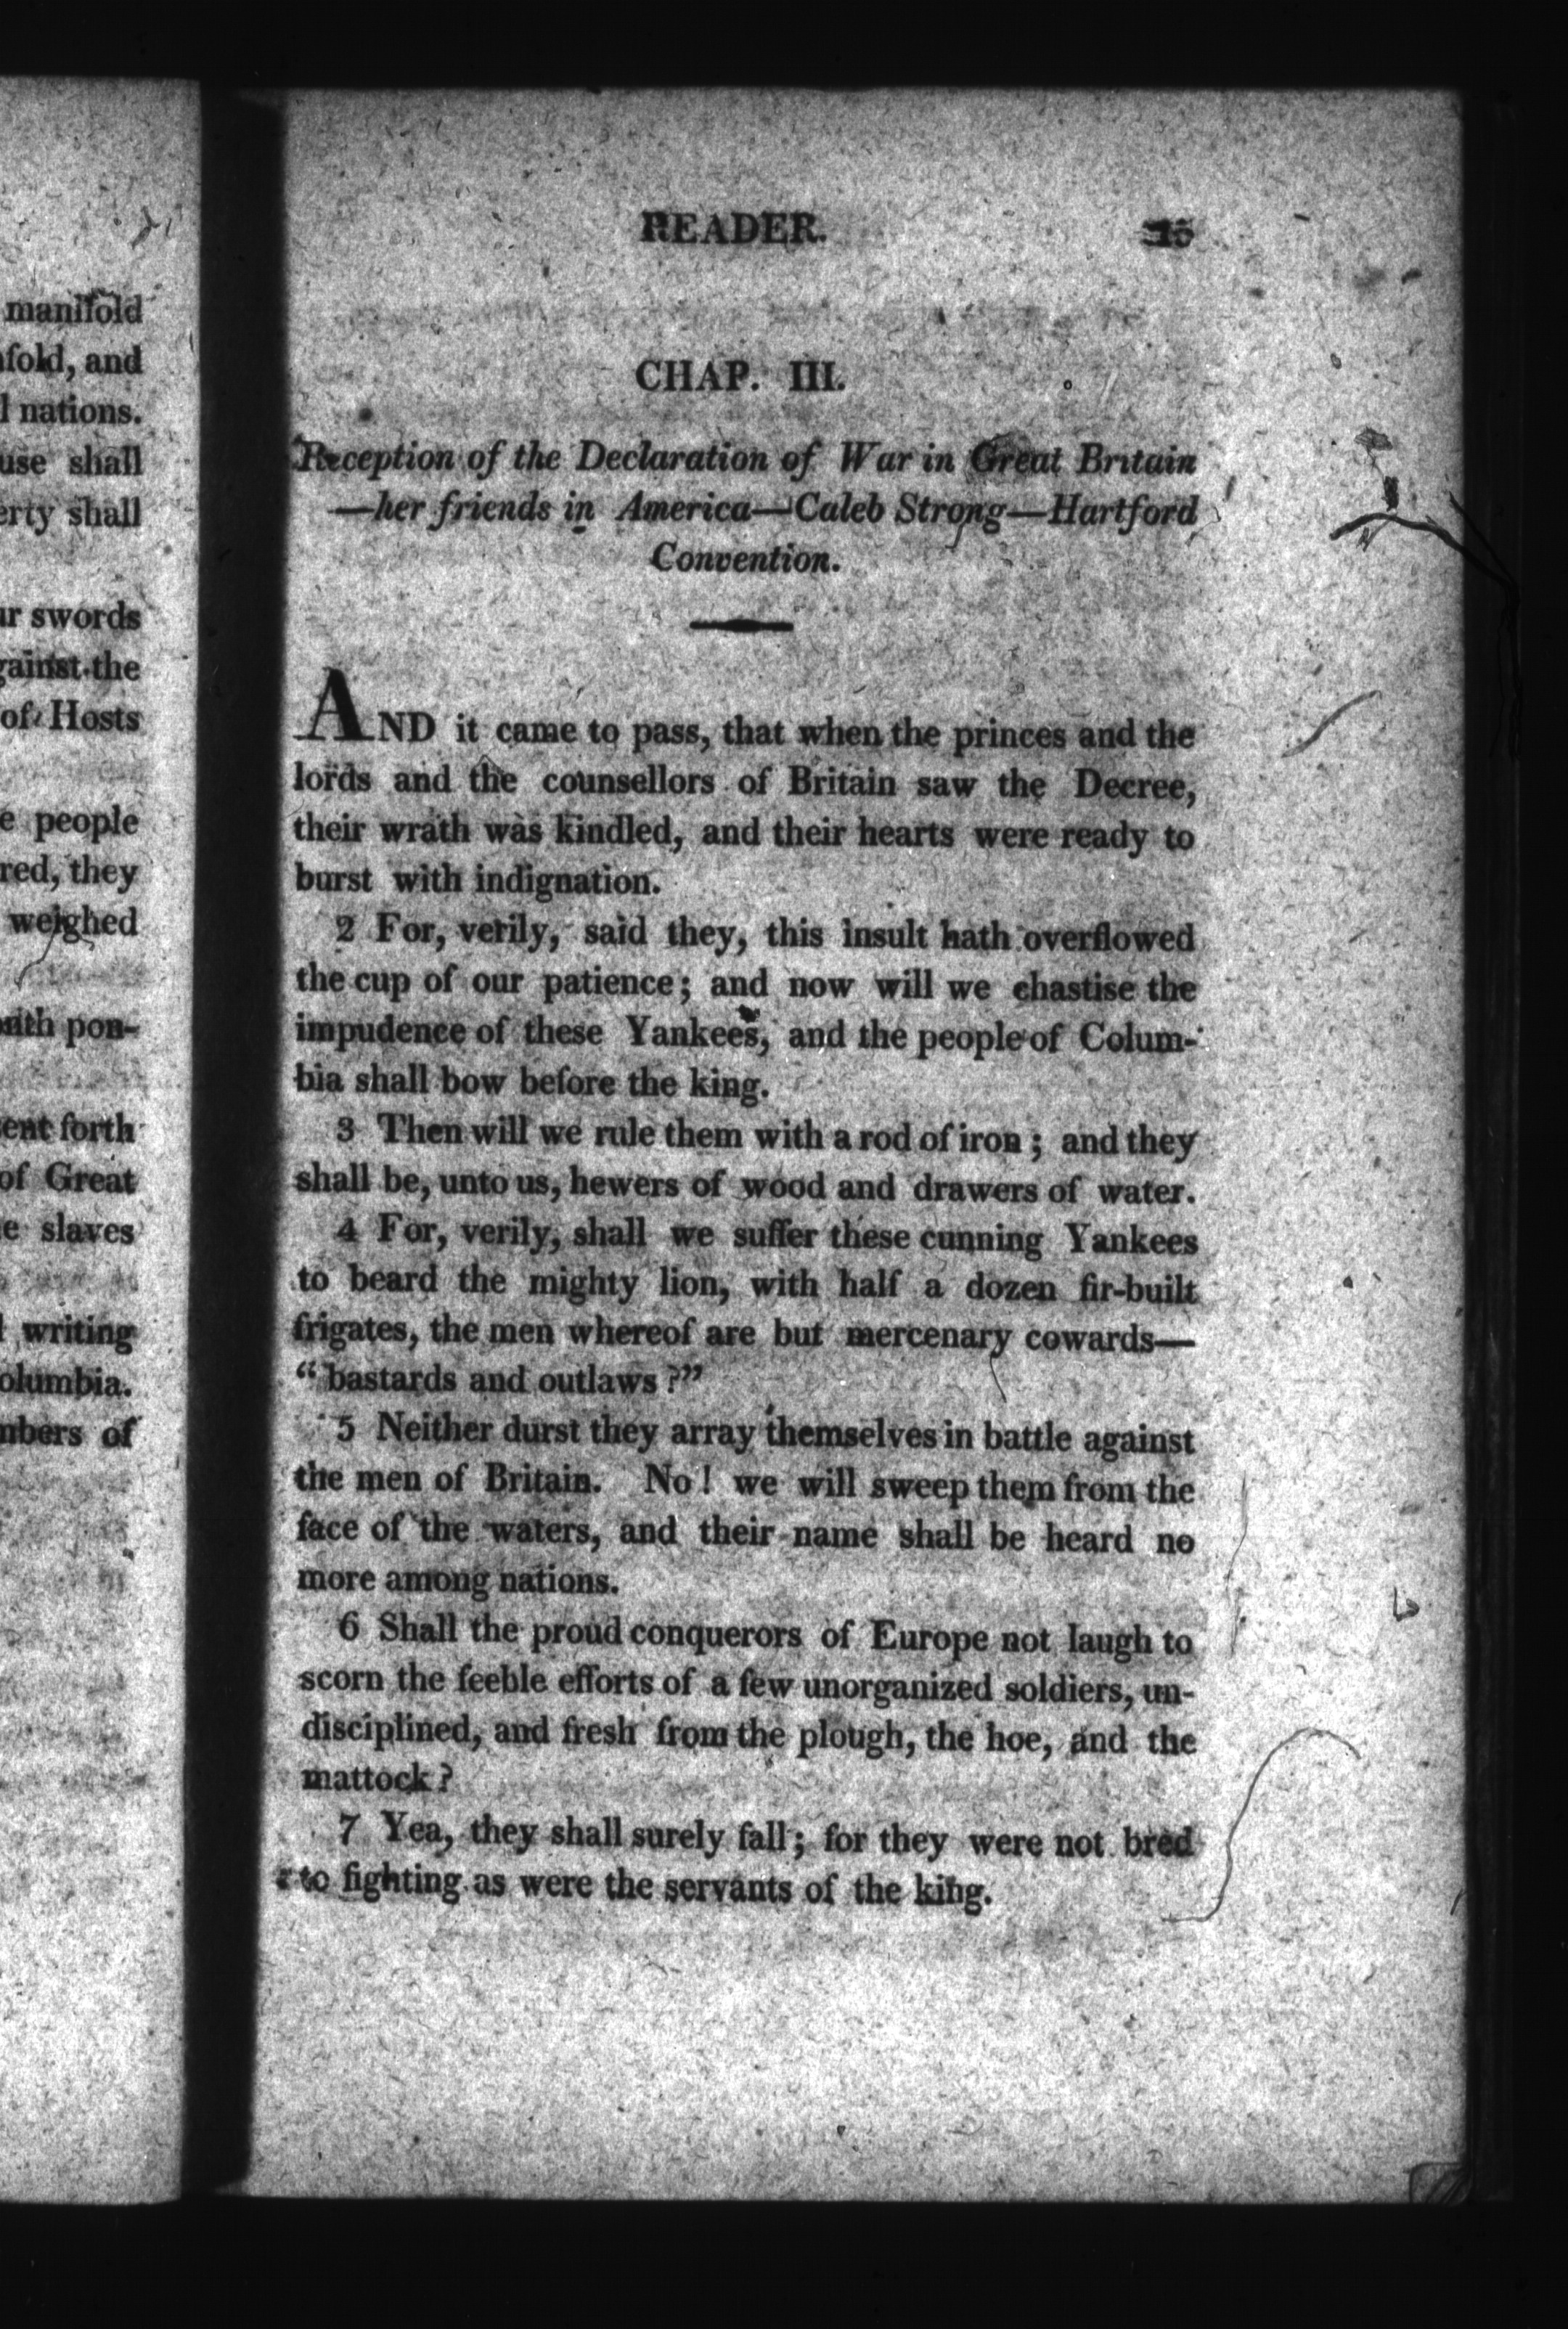 manifold
fold, and
nations.
use shall
erty shall
ur swords
gainst the
of Hosts
e people
red, they
weighed
onth pon-
sent forth
of Great
e slaves
writing
olumbia.
mbers of
READER. 15
CHAP. III.
Reception of the Declaration of War in Great Britain
—her friends in America—Caleb Strong—Hartford
Convention.
AND it came to pass, that when the princes and the
lords and the counsellors of Britain saw the Decree,
their wrath was kindled, and their hearts were ready to
burst with indignation.
2 For, verily, said they, this insult hath overflowed
the cup of our patience; and now will we chastise the
impudence of these Yankees, and the people of Colum-
bia shall bow before the king.
3 Then will we rule them with a rod of iron; and they
shall be, unto us, hewers of wood and drawers of water.
4 For, verily, shall we suffer these cunning Yankees
to beard the mighty lion, with half a dozen fir-built
frigates, the men whereof are but mercenary cowards—
“bastards and outlaws?”
5 Neither durst they array themselves in battle against
the men of Britain. No! we will sweep them from the
face of the waters, and their name shall be heard no
more among nations.
6 Shall the proud conquerors of Europe not laugh to
scorn the feeble efforts of a few unorganized soldiers, un-
disciplined, and fresh from the plough, the hoe, and the
mattock?
7 Yea, they shall surely fall; for they were not bred
to fighting as were the servants of the king.